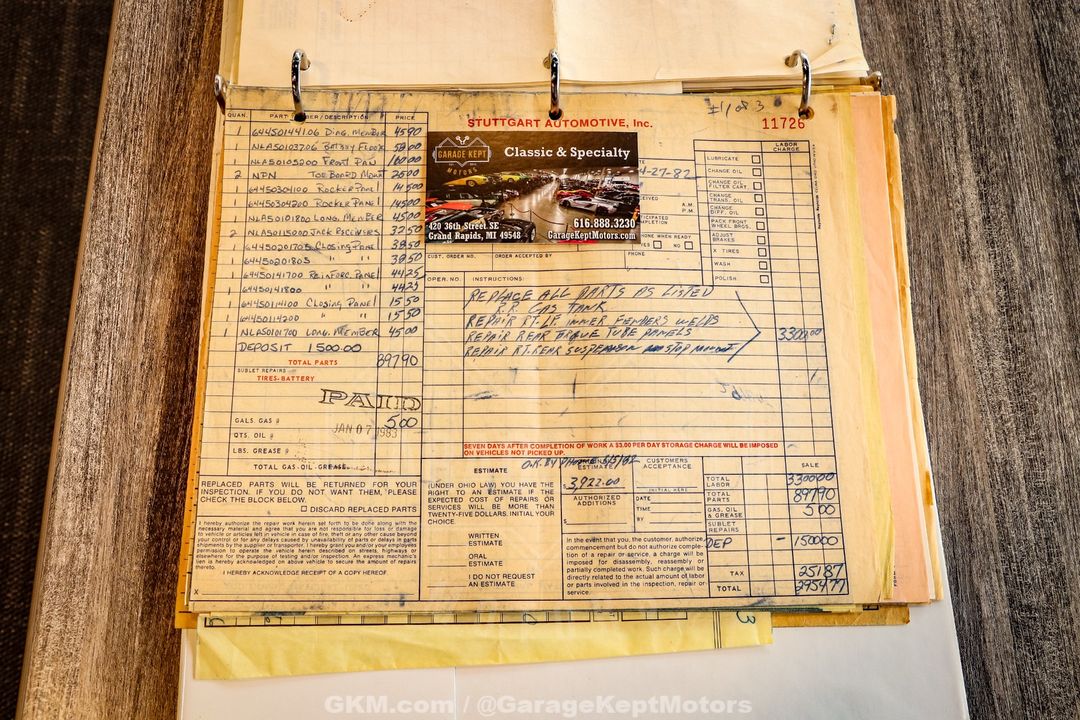 #1 of 3
STUTTGART AUTOMOTIVE, Inc.
11726
QUAN. PART NUMBER / DESCRIPTION PRICE
1 64450144106 DIAG. MEMBER 45.90
1 NLA50103706 BATTERY FLOOR
1 NLA50105200 FRONT PAN 160.00
2 NPN TOE BOARD MOUNT 25.00
1 64450304100 ROCKER PANEL 145.00
1 64450304200 ROCKER PANEL 145.00
1 NLA50101800 LONG. MEMBER 45.00
2 NLA50115000 JACK RECEIVERS 32.50
1 64450201705 CLOSING PANEL 38.50
1 64450201805 " " 38.50
1 64450141700 REINFORC. PANEL 44.25
1 64450141800 " " 44.25
1 64450114100 CLOSING PANEL 15.50
1 64450114200 " " 15.50
1 NLA50101700 LONG. MEMBER 45.00
DEPOSIT 1500.00
TOTAL PARTS 897.90
SUBLET REPAIRS
TIRES-BATTERY
PAID
JAN 07 1983
GALS. GAS @ 5.00
QTS. OIL @
LBS. GREASE @
TOTAL GAS-OIL-GREASE
GARAGE KEPT
MOTORS
Classic & Specialty
420 36th Street SE
Grand Rapids, MI 49548
616.888.3230
GarageKeptMotors.com
4-27-82
A.M.
P.M.
PHONE WHEN READY
YES NO
CUST. ORDER NO. ORDER ACCEPTED BY PHONE
LABOR CHARGE
LUBRICATE
CHANGE OIL
CHANGE OIL FILTER CART.
CHANGE TRANS. OIL
CHANGE DIFF. OIL
PACK FRONT WHEEL BRGS.
ADJUST BRAKES
X TIRES
WASH
POLISH
OPER. NO. INSTRUCTIONS:
REPLACE ALL PARTS AS LISTED
R.R. GAS TANK
REPAIR RT. LF. INNER FENDERS WELDS
REPAIR REAR TORQUE TUBE PANELS
REPAIR RT. REAR SUSPENSION STOP MOUNT
3300.00
SEVEN DAYS AFTER COMPLETION OF WORK A $3.00 PER DAY STORAGE CHARGE WILL BE IMPOSED
ON VEHICLES NOT PICKED UP.
REPLACED PARTS WILL BE RETURNED FOR YOUR
INSPECTION. IF YOU DO NOT WANT THEM, PLEASE
CHECK THE BLOCK BELOW.
DISCARD REPLACED PARTS
I hereby authorize the repair work herein set forth to be done along with the
necessary material and agree that you are not responsible for loss or damage
to vehicle or articles left in vehicle in case of fire, theft or any other cause beyond
your control or for any delays caused by unavailability of parts or delays in parts
shipments by the supplier or transporter. I hereby grant you and/or your employees
permission to operate the vehicle herein described on streets, highways or
elsewhere for the purpose of testing and/or inspection. An express mechanic's
lien is hereby acknowledged on above vehicle to secure the amount of repairs
thereto.
I HEREBY ACKNOWLEDGE RECEIPT OF A COPY HEREOF.
X
ESTIMATE
(UNDER OHIO LAW) YOU HAVE THE
RIGHT TO AN ESTIMATE IF THE
EXPECTED COST OF REPAIRS OR
SERVICES WILL BE MORE THAN
TWENTY-FIVE DOLLARS. INITIAL YOUR
CHOICE.
WRITTEN ESTIMATE
ORAL ESTIMATE
I DO NOT REQUEST AN ESTIMATE
O.K. BY PHONE
ESTIMATE
$ 3,922.00
AUTHORIZED ADDITIONS
$
CUSTOMERS ACCEPTANCE
INITIAL HERE
DATE
TIME
BY
In the event that you, the customer, authorize
commencement but do not authorize comple-
tion of a repair or service, a charge will be
imposed for disassembly, reassembly or
partially completed work. Such charge will be
directly related to the actual amount of labor
or parts involved in the inspection, repair or
service.
SALE
TOTAL LABOR 3300.00
TOTAL PARTS 897.90
GAS, OIL & GREASE 5.00
SUBLET REPAIRS
DEP - 1500.00
TAX 251.87
TOTAL 2954.77
GKM.com / @GarageKeptMotors